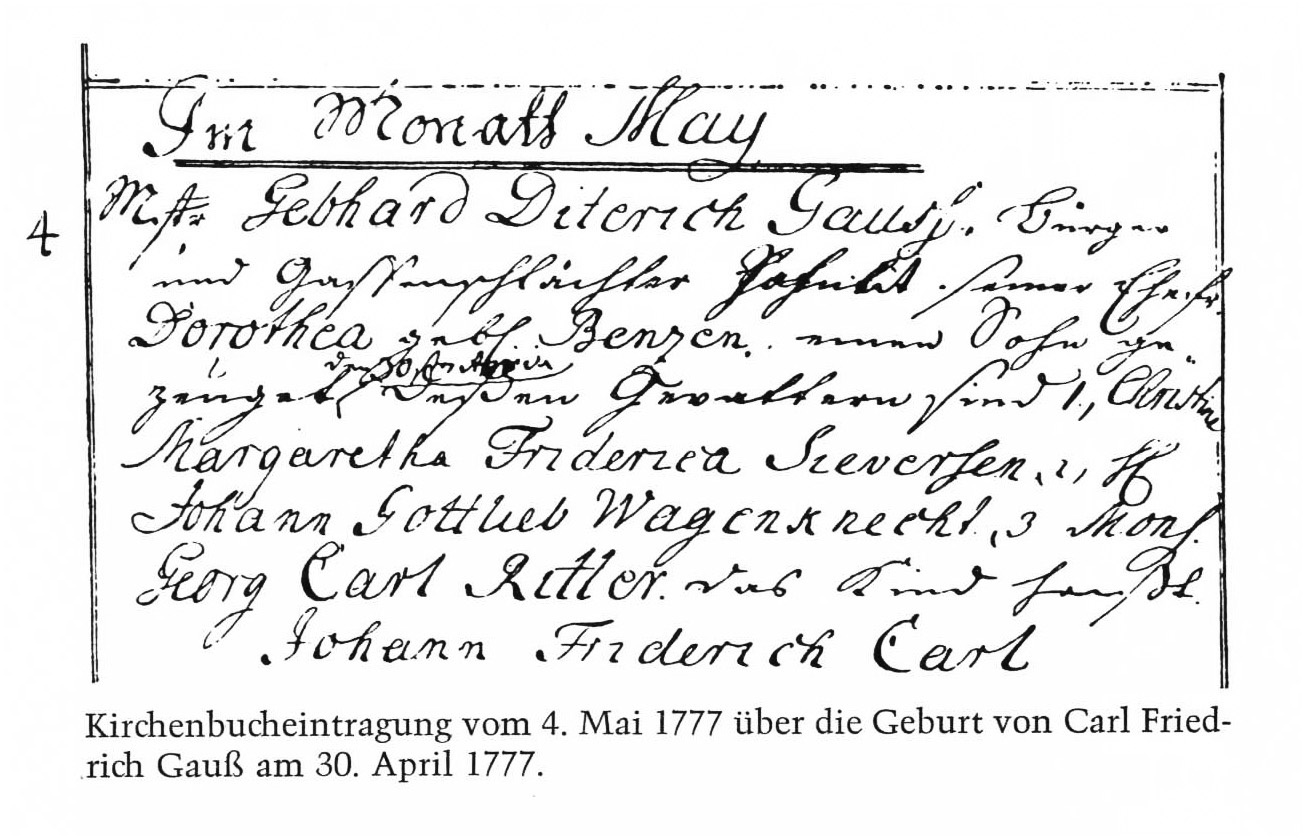 Im Monath May
4
Mstr Gebhard Diterich Gauss, Bürger
und Gassenschlächter hat mit seiner Ehefr.
Dorothea geb. Benzen. einen Sohn ge-
den 30sten April
zeuget, Deßen Gevattern sind 1, Christine
Margaretha Friderica Sieversen, 2, H
Johann Gottlieb Wagenknecht, 3 Mons.
Georg Carl Ritter. das Kind heißt.
Johann Friderich Carl
Kirchenbucheintragung vom 4. Mai 1777 über die Geburt von Carl Fried-
rich Gauß am 30. April 1777.